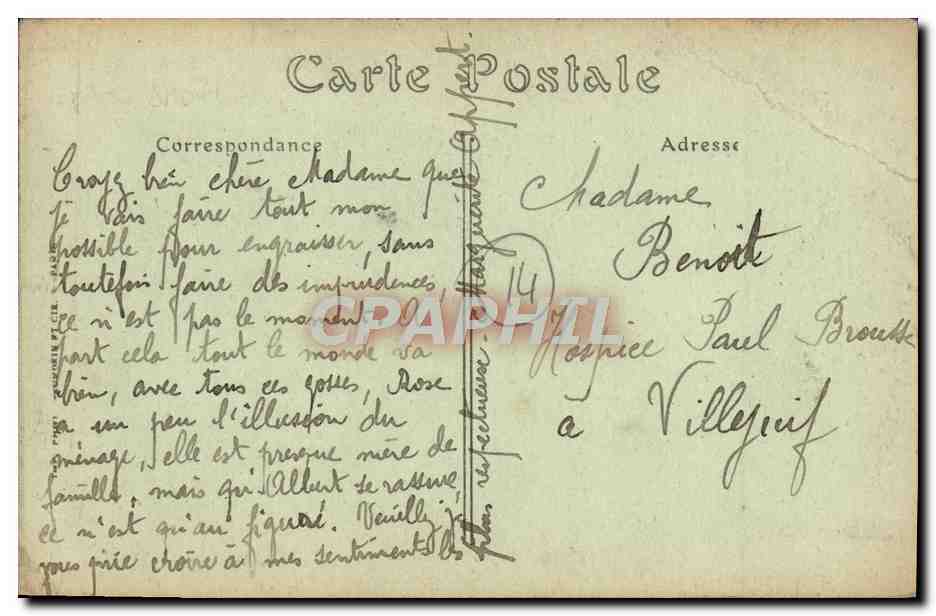 Carte Postale
Correspondance
Croyez bien chère Madame que
je vais faire tout mon
possible pour engraisser, sans
toutefois faire des imprudences,
ce n'est pas le moment. A
part cela tout le monde va
bien, avec tous ces gosses, Rose
a un peu l'illusion du
ménage, elle est presque mère de
famille, mais qu'Albert se rassure,
ce n'est qu'au figuré. Veuillez je
vous prie croire à mes sentiments les
plus respectueuse - Marguerite Appert.
Adresse
Madame
Benoit
14
Hospice Paul Brousse
à Villejuif
CPAPHIL
PARIS